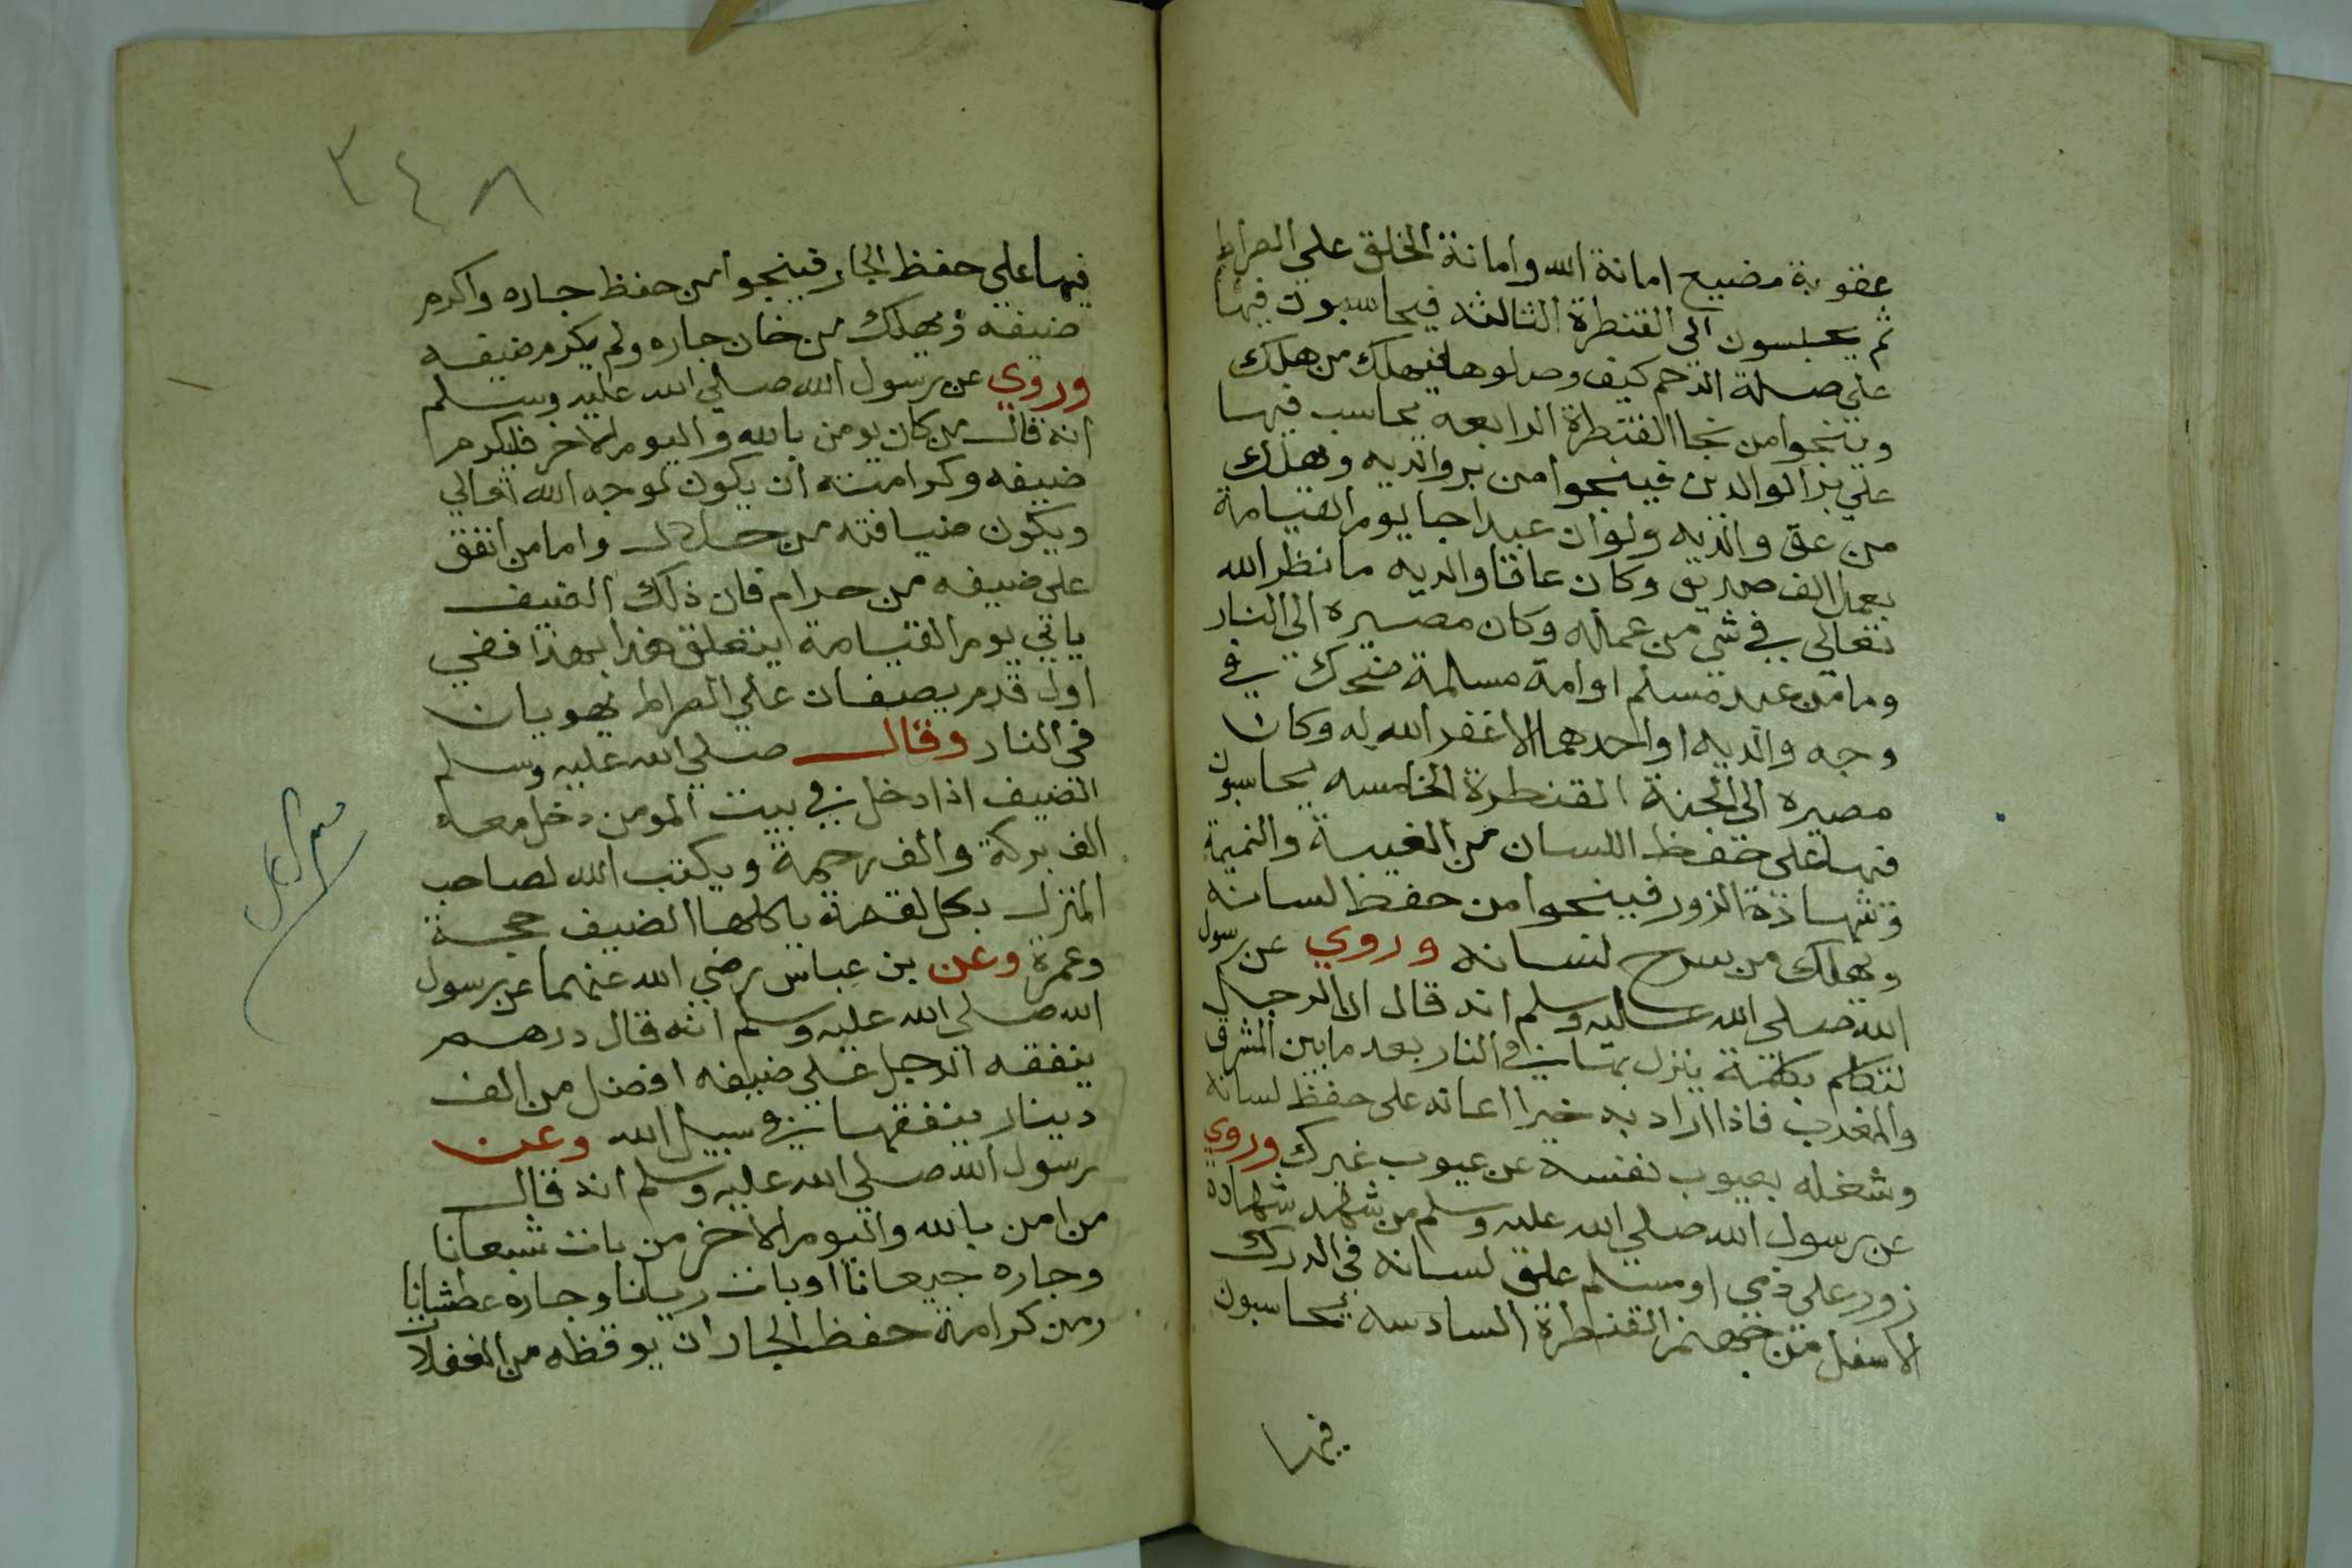 عقوبة مضيع امانة الله وامانة الخلق علي الصراط
ثم يحبسون الي القنطرة الثالثه فيحاسبون فيها
علي صلة الرحم كيف وصلوها فيهلك من هلك
وينجوا من نجا القنطرة الرابعه يحاسب فيها
علي بر الوالدين فينجوا من بر والديه ويهلك
من عق والديه ولو ان عبدا جا يوم القيامة
بعمل الف صديق وكان عاقا والديه ما نظر الله
تعالي في شي من عماله وكان مصيره الي النار
وما من عبد مسلم او امة مسلمة ضحك في
وجه والديه او احدهما الا غفر الله له وكان
مصيره الي الجنة القنطرة الخامسه يحاسبون
فيها علي حفظ اللسان من الغيبة والنميمة
وشهادة الزور فينجوا من حفظ لسانه
ويهلك من سرح لسانه وروي عن رسول
الله صلي الله عليه وسلم انه قال ان الرجل
لتكلم بكلمة ينزل بها في النار بعد ما بين المشرق
والمغرب فاذا اراد به خيرا اعانه علي حفظ لسانه
وشغله بعيوب نفسه عن عيوب غيرك وروي
عن رسول الله صلي الله عليه وسلم من شهد شهادة
زور علي ذمي او مسلم علق لسانه في الدرك
الاسفل من جهنم القنطرة السادسه يحاسبون
فيها
٣٤٨
فيها علي حفظ الجار فينجوا من حفظ جاره واكرم
ضيفه ويهلك من خان جاره ولم يكرم ضيفه
وروي عن رسول الله صلي الله عليه وسلم
انه قال من كان يومن بالله واليوم الاخر فليكرم
ضيفه وكرامته ان يكون لموجه الله تعالي
ويكون ضيافته من حلال واما من انفق
علي ضيفه من حرام فان ذلك الضيف
ياتي يوم القيامة يتعلق هذا بهذا ففي
اول قدم يصفان علي الصراط يهويان
في النار وقال صلي الله عليه وسلم
الضيف اذا دخل في بيت المومن دخل معه
الف بركة والف رحمة ويكتب الله لصاحب
المنزل بكل لقمة ياكلها الضيف حجة
وعمرة وعن بن عباس رضي الله عنهما عن رسول
الله صلي الله عليه وسلم انه قال درهم
ينفقه الرجل علي ضيفه افضل من الف
دينار ينفقها في سبيل الله وعن
رسول الله صلي الله عليه وسلم انه قال
من امن بالله واليوم الاخر من بات شبعانا
وجاره جيعانا او بات ريانا وجاره عطشانا
ومن كرامة حفظ الجار ان يوقظه من الغفلان